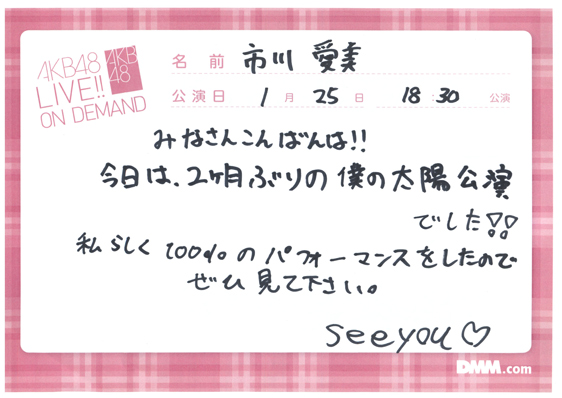 AKB48
LIVE!!
ON DEMAND
AKB
48
名前 市川 愛美
公演日 1月25日 18:30 公演
みなさんこんばんは!!
今日は、2ヶ月ぶりの僕の太陽公演
でした!!
私らしく100%のパフォーマンスをしたので
ぜひ見て下さい。
see you♡
DMM.com